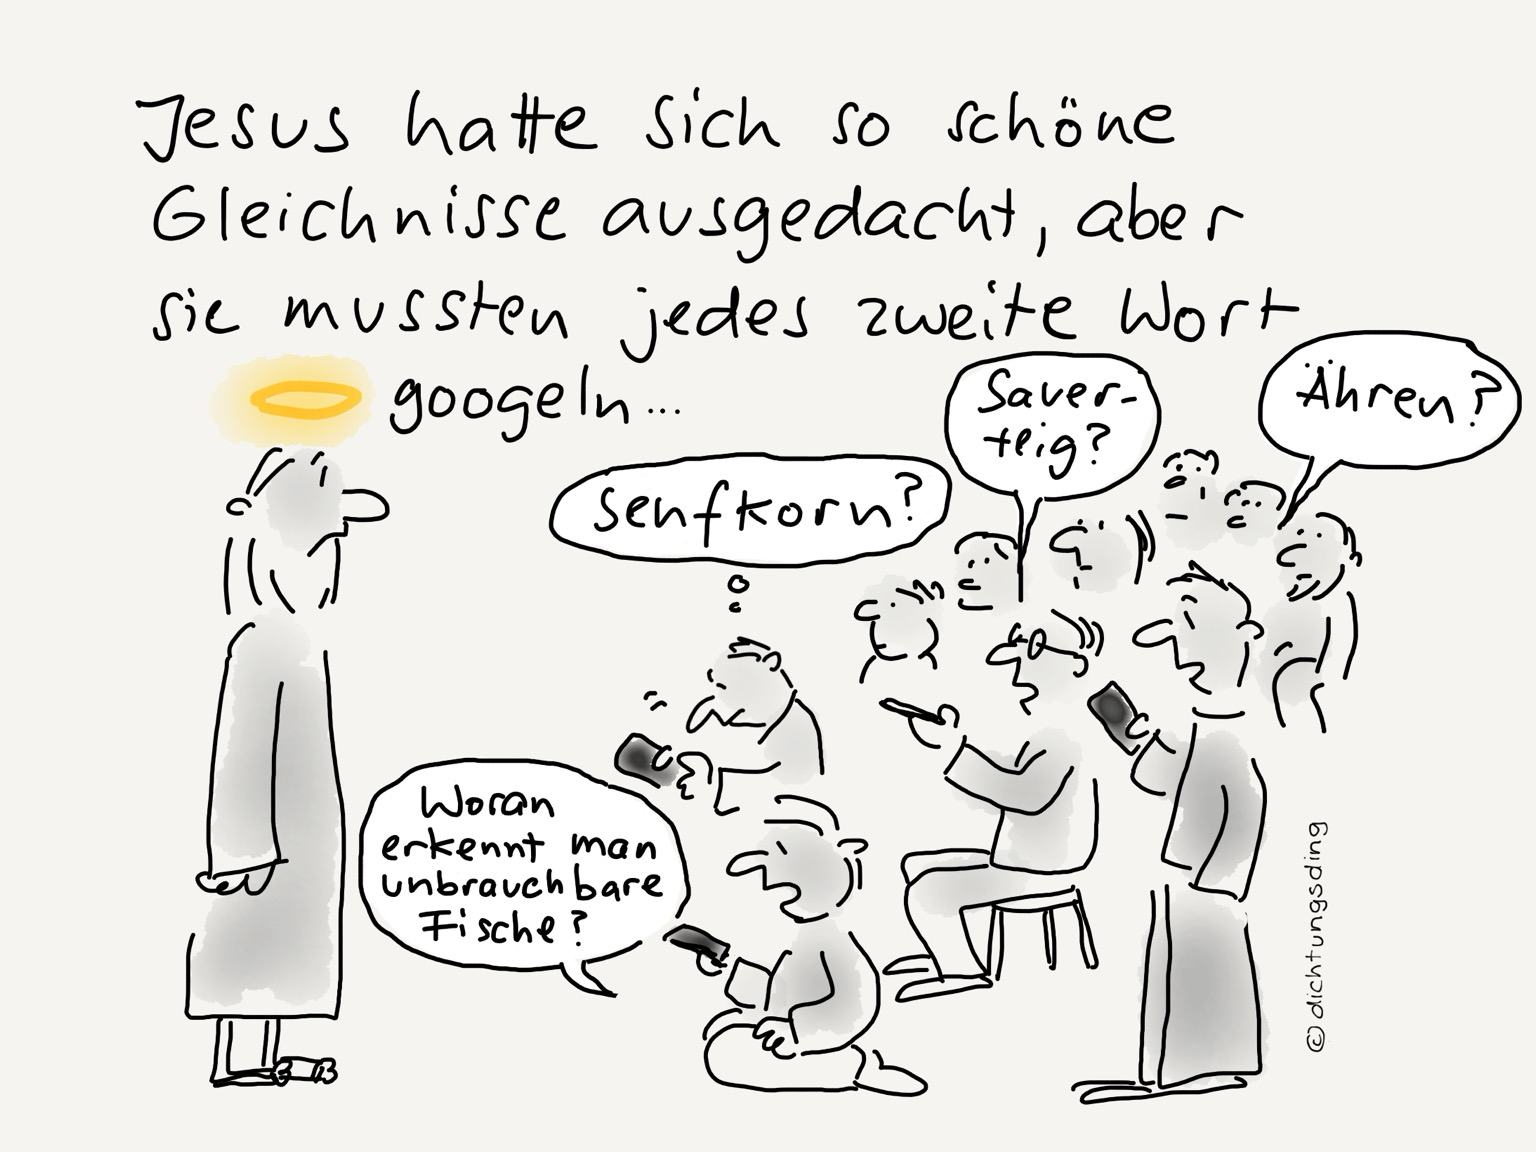 Jesus hatte sich so schöne
Gleichnisse ausgedacht, aber
sie mussten jedes zweite Wort
googeln...
Senfkorn?
Sauer-
teig?
Ähren?
Woran
erkennt man
unbrauchbare
Fische?
©dichtungsding